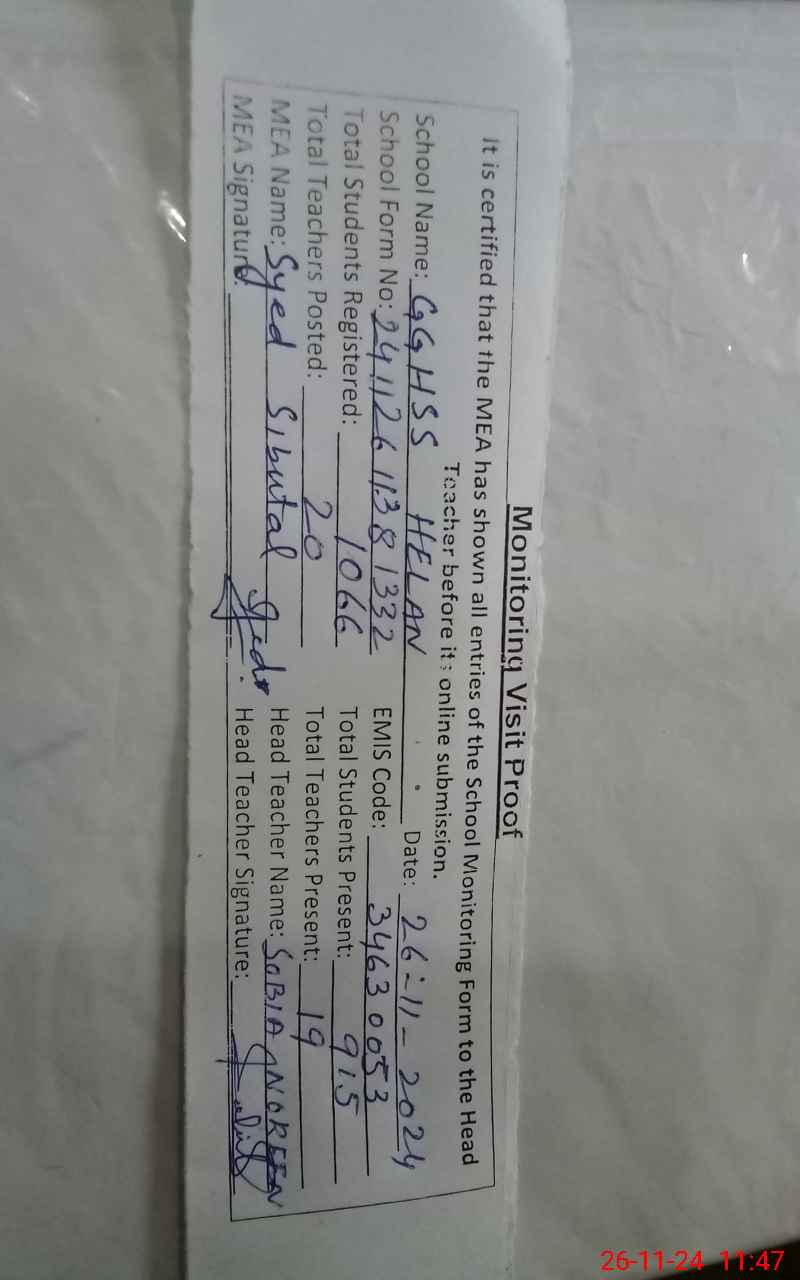 Monitoring Visit Proof
It is certified that the MEA has shown all entries of the School Monitoring Form to the Head
Teacher before its online submission.
School Name: GGHSS HELAN Date: 26-11-2024
School Form No: 24112611381332 EMIS Code: 34630053
Total Students Registered: 1066 Total Students Present: 915
Total Teachers Posted: 20 Total Teachers Present: 19
MEA Name: Syed Sibutal Head Teacher Name: SOBIA NOREEN
MEA Signature: Head Teacher Signature:
26-11-24 11:47